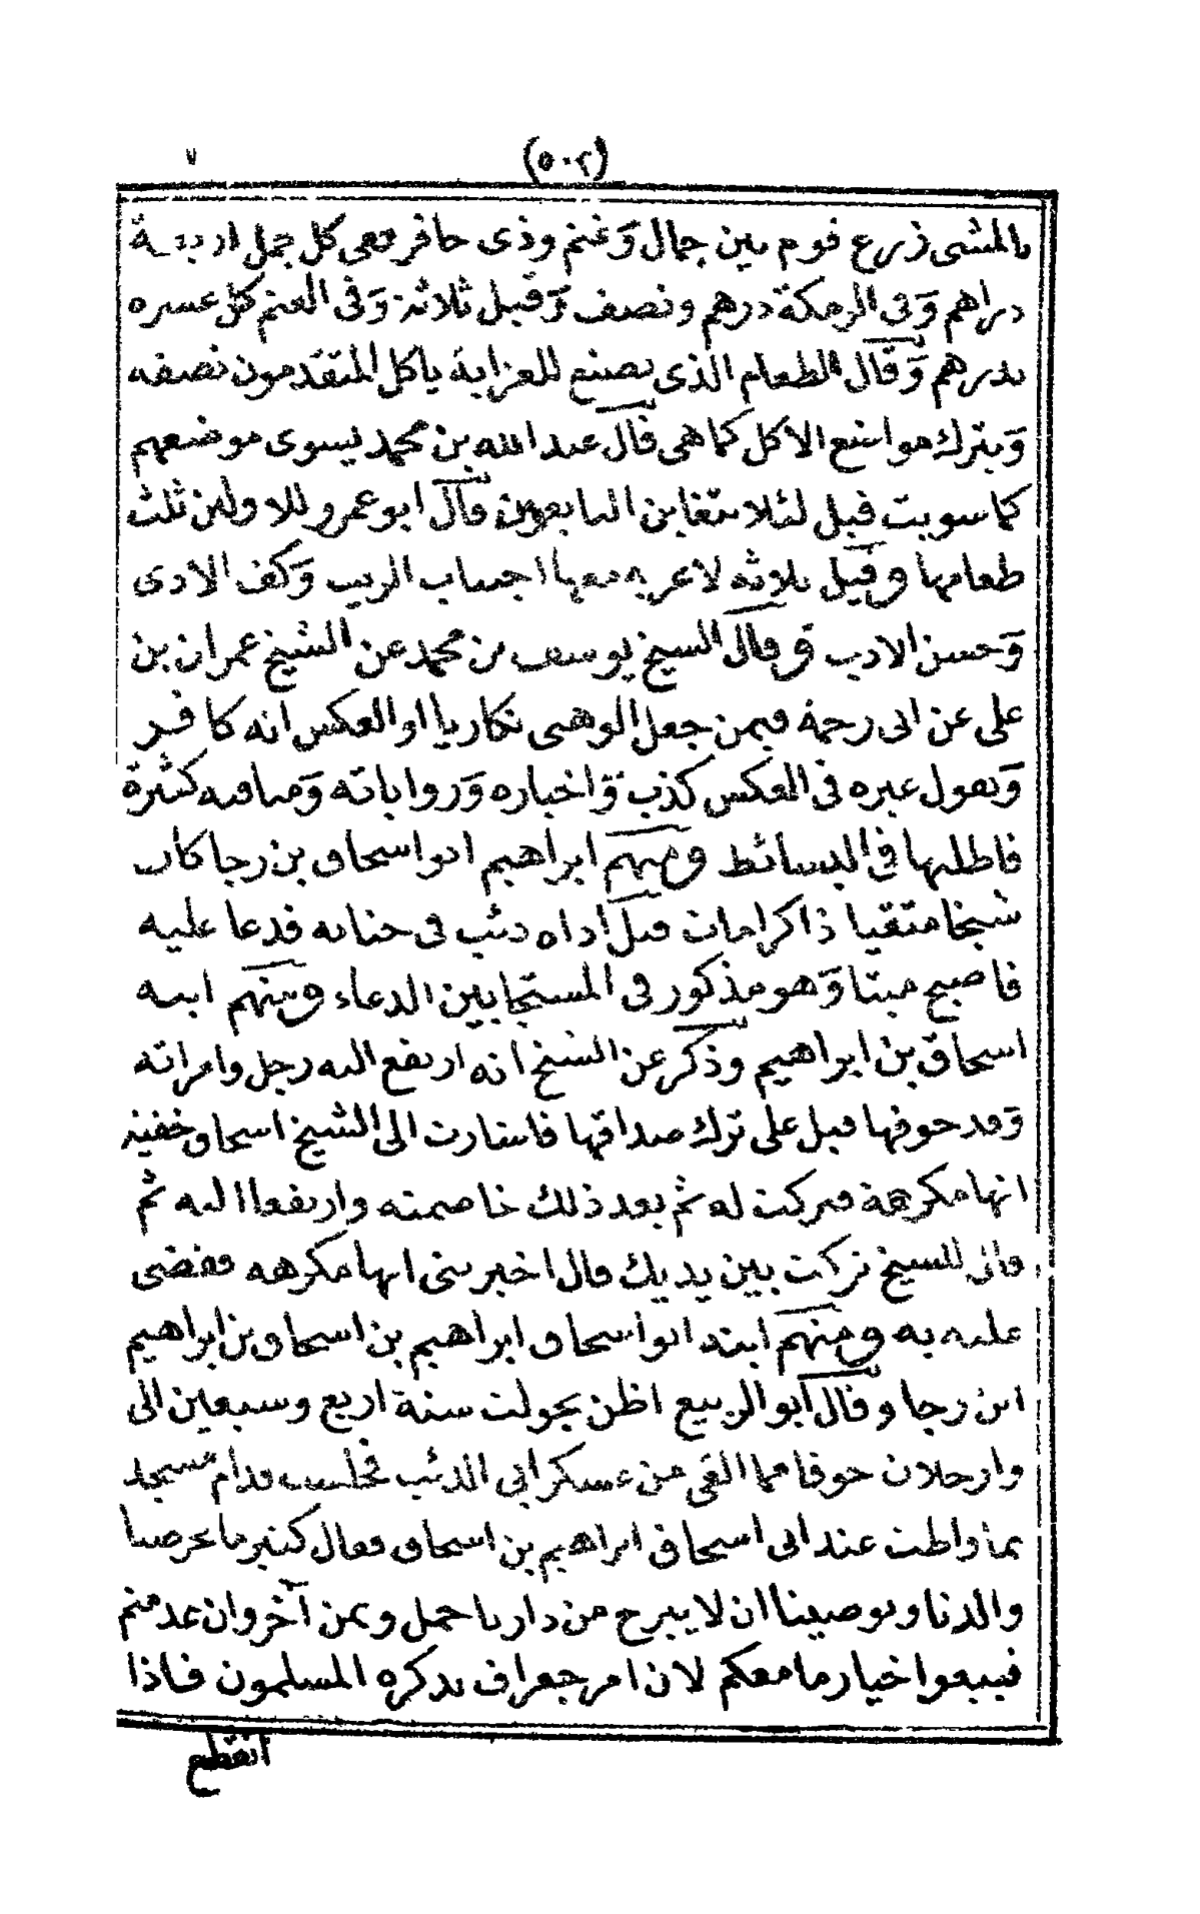 (٥٠٢)
بالمشى زرع قوم بين جمال وغنم وذى حافر ففى كل جمل اربعة
دراهم وفى الرمكة درهم ونصف وقيل ثلاثة وفى الغنم كل عشرة
بدرهم وقال الطعام الذى يصنع للعزابة ياكل المتقدمون نصفه
ويترك مواضع الاكل كما هى قال عبد الله بن محمد يسوى موضعهم
كما سويت قيل لئلا يتغابن التابعون قال ابو عمرو للاولين ثلث
طعامها وقيل ثلاثة لا غربة معها اجتناب الريب وكف الاذى
وحسن الادب وقال الشيخ يوسف بن محمد عن الشيخ عمران بن
على عن ابى رحمة فيمن جعل الوهبى نكاريا او العكس انه كافر
ويقول غيره فى العكس كذب واخباره ورواياته ومناقبه كثيرة
فاطلبها فى البسائط ومنهم ابراهيم ابو اسحاق بن رجا كان
شيخا متقيا ذا كرامات قيل اذاه ذئب فى جنانه فدعا عليه
فاصبح ميتا وهو مذكور فى المستجابين الدعاء ومنهم ابنه
اسحاق بن ابراهيم وذكر عن الشيخ انه ارتفع اليه رجل وامراته
وقد خوفها قبل على ترك صداقها فاشارت الى الشيخ اسحاق خفية
انها مكرهة فتركت له ثم بعد ذلك خاصمته وارتفعا اليه ثم
قال للشيخ تركت بين يديك قال اخبرتنى انها مكرهه فقضى
عليه به ومنهم ابنه ابو اسحاق ابراهيم بن اسحاق بن ابراهيم
ابن رجا وقال ابو الربيع اظن تجولت سنة اربع وسبعين الى
وارجلان خوفا مما القى من عسكر ابى الذئب فجلست قدام مسجد
تماواطت عند ابى اسحاق ابراهيم بن اسحاق فقال كثير ما يحرصنا
والدنا ويوصينا ان لا يبرح من دارنا حمل وبمن آخر وان عدمتم
فبيعوا خيار ما معكم لان امر جعراف يذكره المسلمون فاذا
انقطع